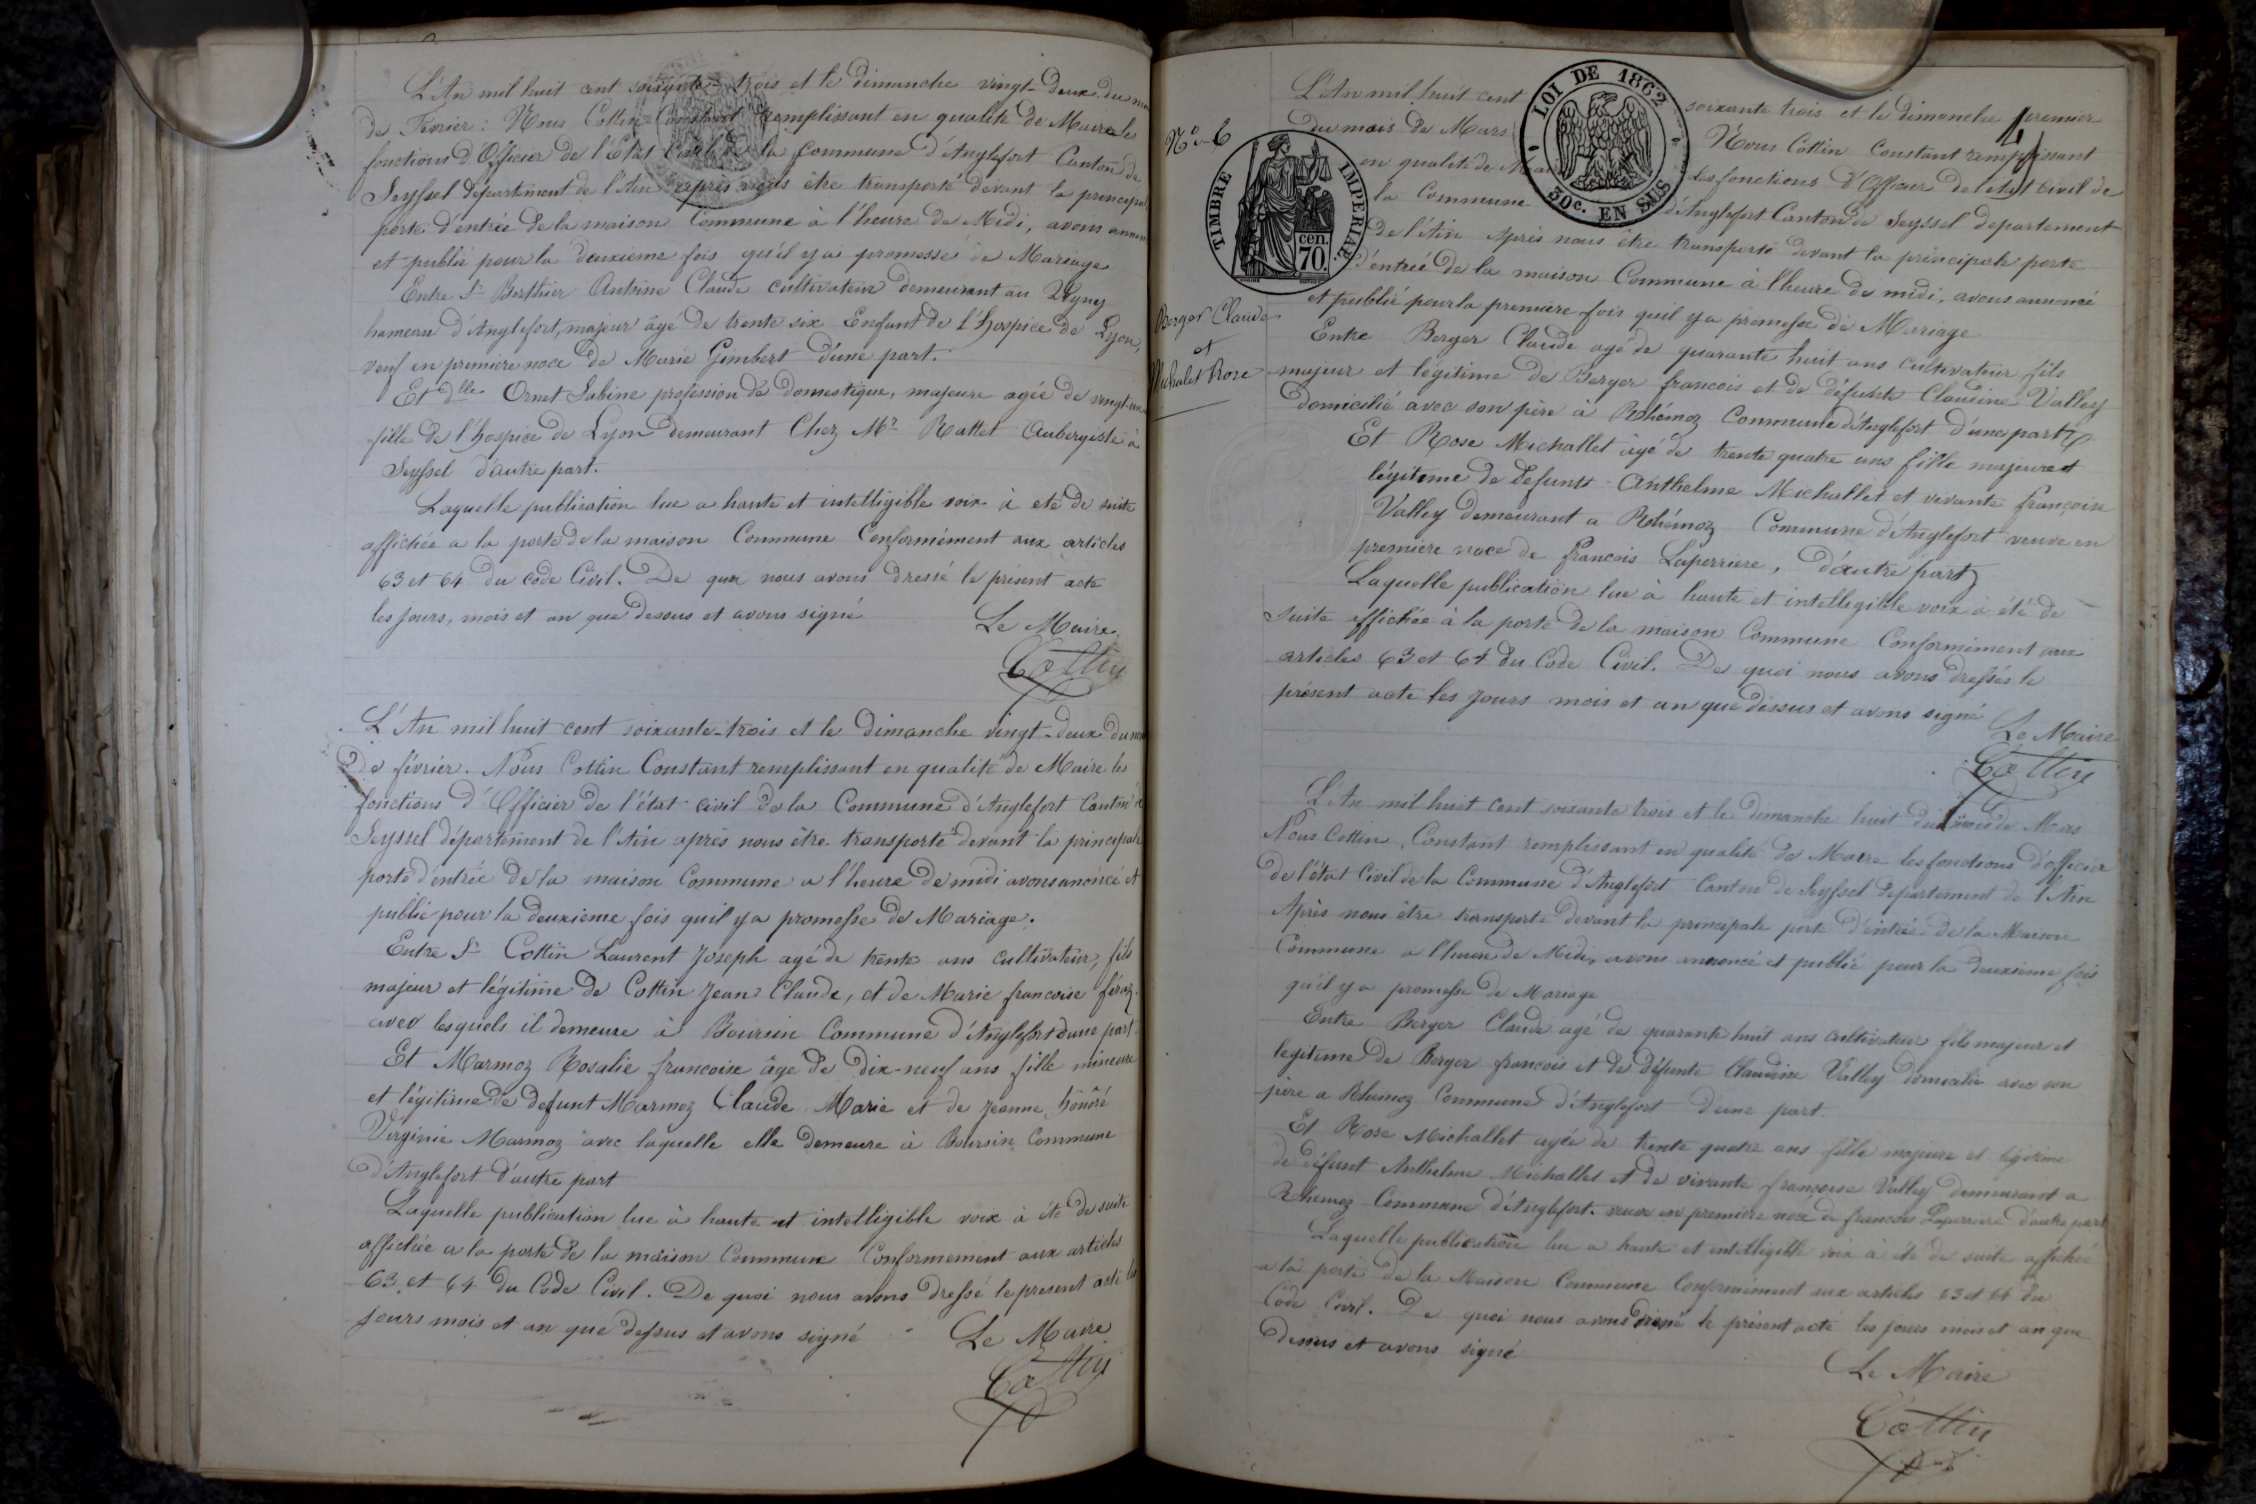 L'An mil huit cent soixante-trois et le Dimanche vingt-Deux du mois
de Février: Nous Cottin Constant remplissant en qualité de Maire les
fonctions d'Officier de l'Etat Civil de la Commune d'Anglefort Canton de
Seyssel Département de l'Ain après nous être transporté devant la principale
porte d'entrée de la maison Commune à l'heure de Midi, avons annoncé
et publié pour la deuxieme fois qu'il y a promesse de Mariage
Entre Sr Berthier Antoine Claude cultivateur demeurant au
hameau d'Anglefort, majeur âgé de trente six Enfant de l'hospice de Lyon,
veuf en premiere noce de Marie Gimbert d'une part.
Et dlle Ornet Sabine profession de domestique, majeure agée de vingt-un
fille de l'hospice de Lyon demeurant Chez Mr Rattet Aubergiste à
Seyssel d'autre part.
Laquelle publication lue a haute et intelligible voix à eté de suite
affichée a la porte de la maison Commune Conformément aux articles
63 et 64 du code Civil. De quoi nous avons dressé le présent acte
les jours, mois et an que dessus et avons signé
Le Maire
Cottin
L'An mil huit cent soixante-trois et le Dimanche vingt-deux du mois
De février. Nous Cottin Constant remplissant en qualité de Maire les
fonctions d'Officier de l'état civil de la Commune d'Anglefort Canton de
Seyssel département de l'Ain après nous être transporté devant la principale
porte d'entrée de la maison Commune a l'heure de midi avons anoncé et
publié pour la deuxieme fois qu'il y a promesse de Mariage.
Entre Sr Cottin Laurent Joseph agé de trente ans cultivateur, fils
majeur et légitime de Cottin Jean Claude, et de Marie francoise féroz
avec lesquels il demeure à Boursin Commune d'Anglefort d'une part
Et Marmoz Rosalie francoise âgé de dix-neuf ans fille mineure
et légitime de defunt Marmoz Claude Marie et de Jeanne, honoré
Virginie Marmoz avec laquelle elle demeure à Boursin Commune
d'Anglefort d'autre part
Laquelle publication lue à haute et intelligible voix à été de suite
affichée a la porte de la maison Commune Conformement aux articles
63 et 64 du Code Civil. De quoi nous avons dressé le present acte les
jours mois et an que dessus et avons signé
Le Maire
Cottin
4
LOI DE 1862
30c. EN SUS
TIMBRE IMPERIAL
cen.
70.
No 6
Berger Claude
et
Michalet Rose
L'An mil huit cent soixante trois et le dimanche premier
du mois de Mars Nous Cottin Constant remplissant
en qualité de Maire les fonctions d'Officier de l'etat civil de
la Commune d'Anglefort Canton de Seyssel departement
De l'Ain Après nous être transporté devant la principale porte
d'entrée de la maison Commune à l'heure de midi, avons annoncé
et publié pour la premiere fois quil y a promesse de Mariage
Entre Berger Claude agé de quarante huit ans cultivateur fils
majeur et légitime de Berger francois et de défunte Claudine Valley
domicilié avec son père à Rhémoz Commune d'Anglefort d'une part
Et Rose Michallet âgé de trente quatre ans fille majeure et
légitime de Defunt Anthelme Michallet et vivante françoise
Valley demeurant a Rhémoz Commune d'Anglefort veuve en
premiere noce de francois Laperriere, d'autre part
Laquelle publication lue à haute et intelligible voix à été de
suite affichée à la porte de la maison Commune Conformément aux
articles 63 et 64 du Code Civil. De quoi nous avons dressés le
présent acte les jours mois et an que dessus et avons signé
Le Maire
Cottin
L'An mil huit cent soixante trois et le dimanche huit du mois de Mars
Nous Cottin Constant remplissant en qualité de Maire les fonctions d'officier
de l'état Civil de la Commune d'Anglefort Canton de Seyssel departement de l'Ain
Après nous être transporté devant la principale porte d'entrée de la Maison
Commune a l'heure de Midi, avons annoncé et publié pour la deuxieme fois
qu'il y a promesse de Mariage
Entre Berger Claude agé de quarante huit ans cultivateur fils majeur et
legitime de Berger francois et de défunte Claudine Valley domicilié avec son
père a Rhemoz Commune d'Anglefort d'une part.
Et Rose Michallet agée de trente quatre ans fille majeure et légitime
de défunt Anthelme Michallet et de vivante françoise Valley demeurant a
Rhemoz Commune d'Anglefort. veuve en premiere noce de francois Laperriere d'autre part
Laquelle publication lue a haute et intelligible voix à été de suite affichée
a la porte de la Maison Commune Conformément aux articles 63 et 64 du
Code Civil. De quoi nous avons dressé le présent acte les jours mois et an que
dessus et avons signé
Le Maire
Cottin